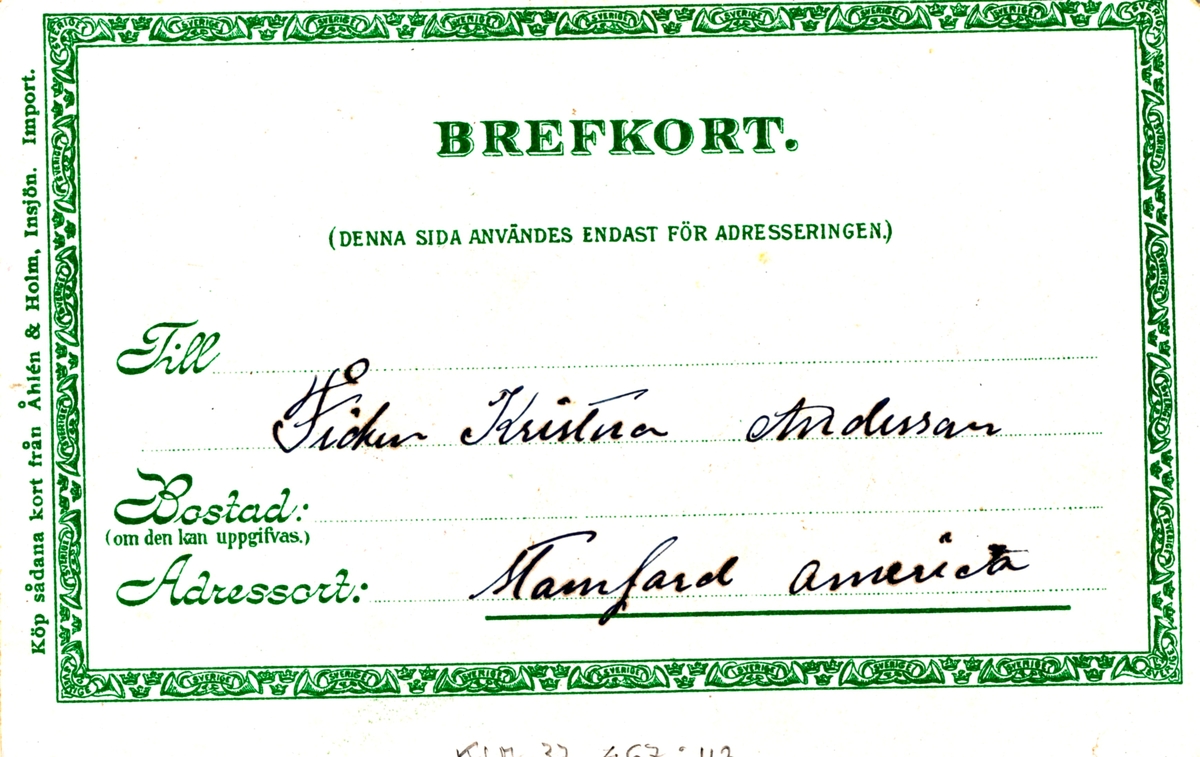 BREFKORT.
(DENNA SIDA ANVÄNDES ENDAST FÖR ADRESSERINGEN.)
Till
Fröken Kristina Andersson
Bostad:
(om den kan uppgifvas.)
Adressort: Stamford America
Köp sådana kort från Åhlén & Holm, Insjön. Import.